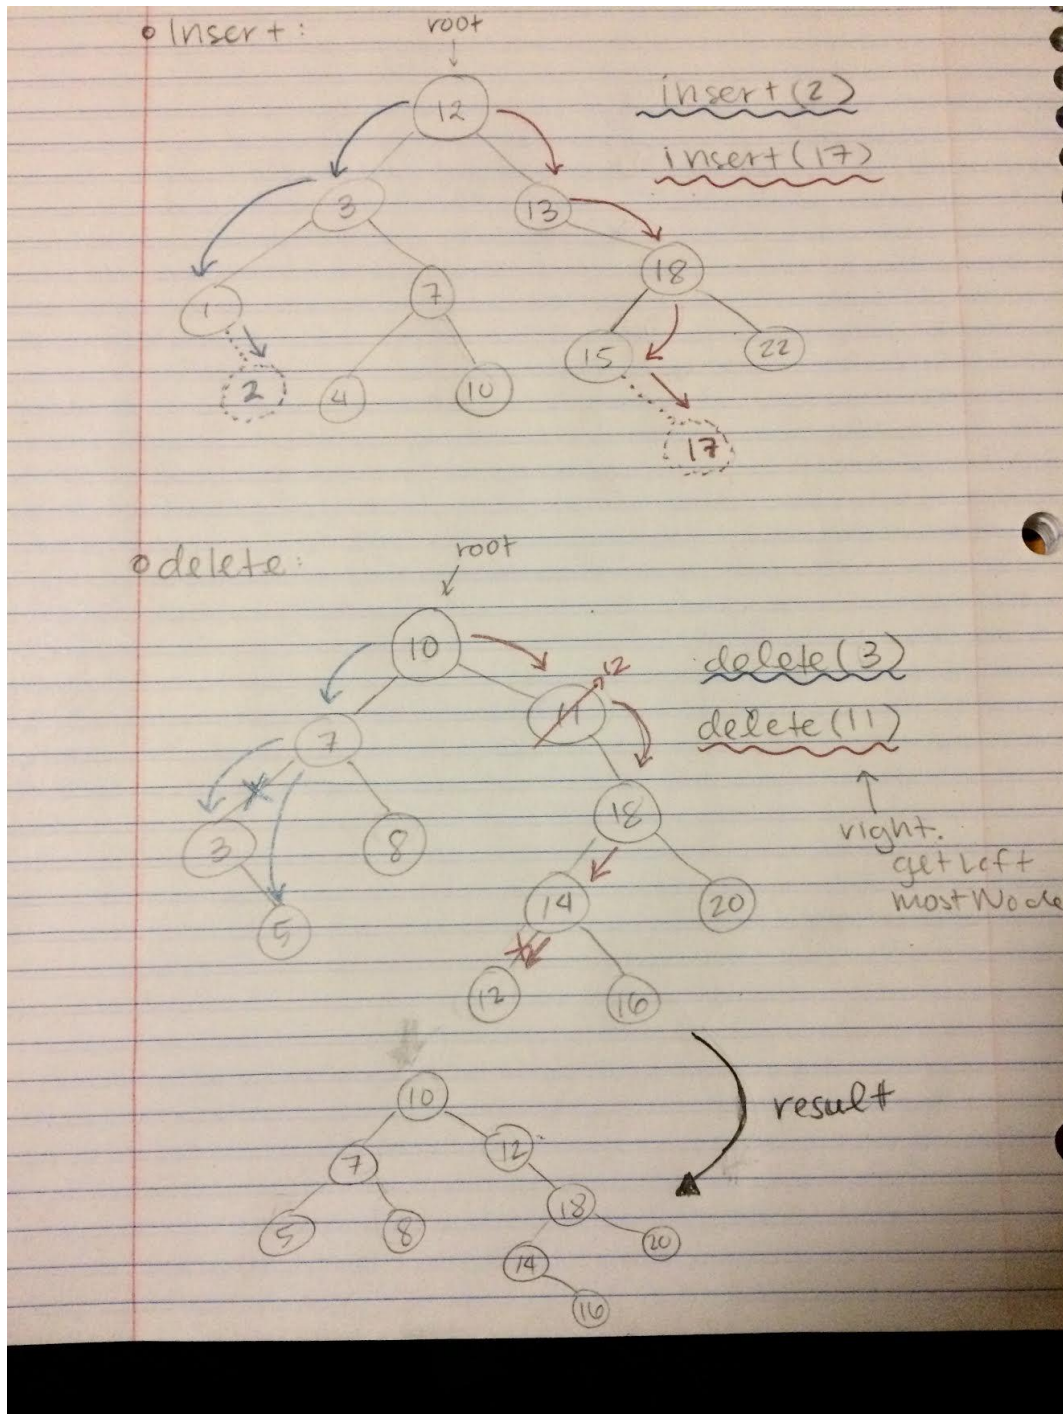 Insert:
root
12
insert(2)
insert(17)
3
13
18
1
7
15
22
2
4
10
17
delete:
root
10
delete(3)
12
11
delete(11)
7
18
right.
getLeft
mostNode
3
8
14
20
5
12
16
10
result
7
12
5
8
18
14
20
16